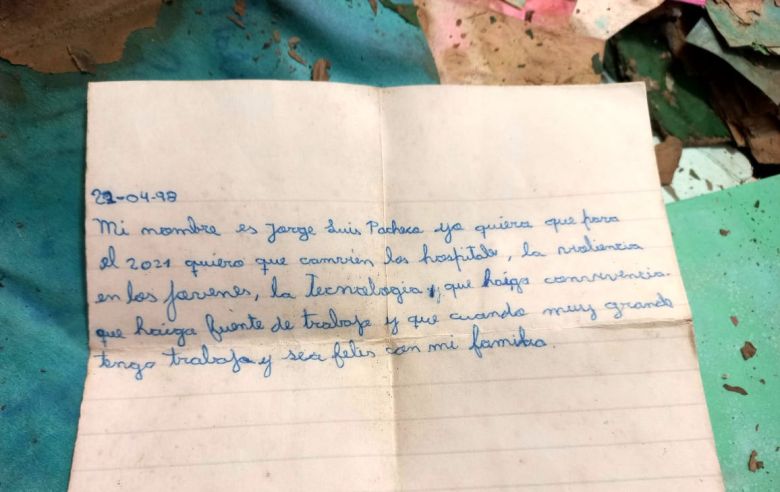 22-04-98
Mi nombre es Jorge Luis Pacheco yo quiero que para
el 2021 quiero que camvien los hospitales, la violiencia
en los jovenes, la Tecnologia y que haiga convivencia.
que haiga fuente de trabajo y que cuando muy grande
tengo trabajo y sea felis con mi familia.